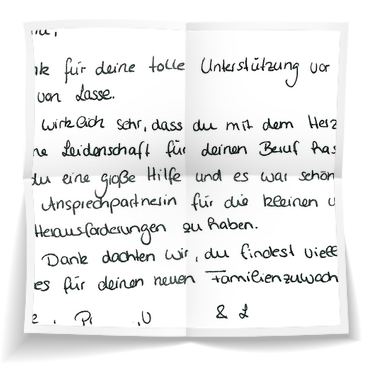 für deine tolle Unterstützung vor
von Lasse.
wirklich sehr, dass du mit dem Herz
ne Leidenschaft für deinen Beruf has
du eine große Hilfe und es war schön
Ansprechpartnerin für die kleinen u
Herausforderungen zu haben.
Dank dachten wir, du findest viell
es für deinen neuen Familienzuwach
& L